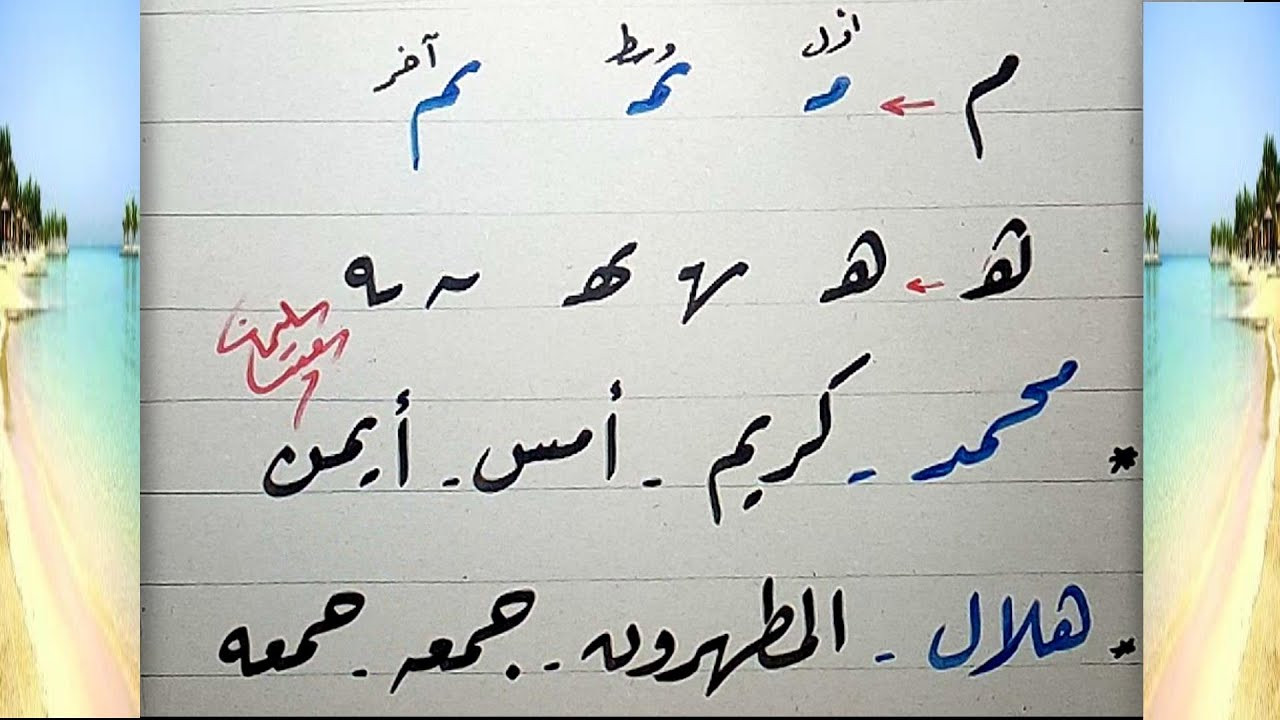 أول وسط آخر
م ← مـ ـمـ ـم
ه ← هـ ـهـ ـهـ ـه ـه
* محمد - كريم - أمس - أيمن
* هلال - المطهرون - جمعه - جمعه